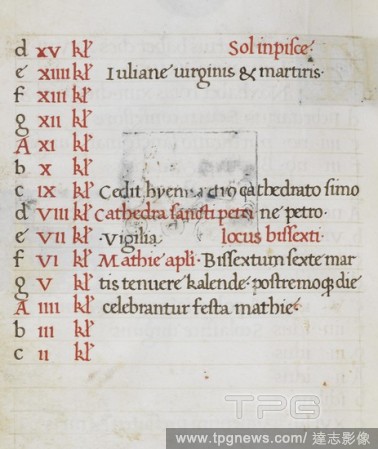 d xv kl Sol in pisce.
e xiiii kl Iuliane uirginis & martiris.
f xiii kl
g xii kl
A xi kl
b x kl
c ix kl Cedit hyems retro cathedrato simo
d viii kl Cathedra sancti petri ne petro.
e vii kl Vigilia locus bissexti.
f vi kl Mathie apli. Bissextum sexte mar
g v kl tis tenuere kalende. postremoq; die
A iiii kl celebrantur festa mathie.
b iii kl
c ii kl
TPG
www.tpgnews.com / 達志影像